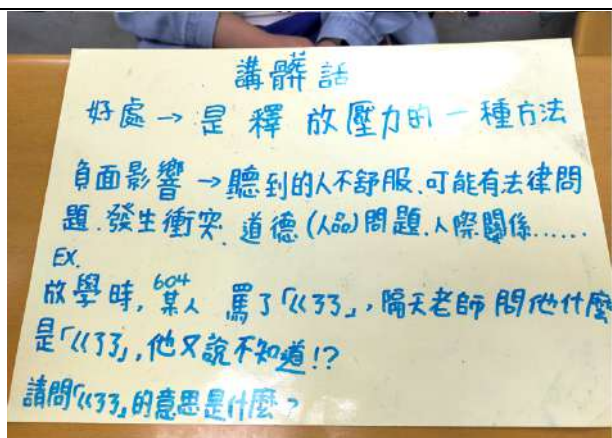 講髒話
好處→是 釋 放壓力的一種方法
負面影響→聽到的人不舒服.可能有法律問
題.發生衝突.道德(人品)問題.人際關係......
EX.
放學時,604某人 罵了「ㄍㄋㄋ」,隔天老師問他什麼
是「ㄍㄋㄋ」,他又說不知道!?
請問「ㄍㄋㄋ」的意思是什麼?